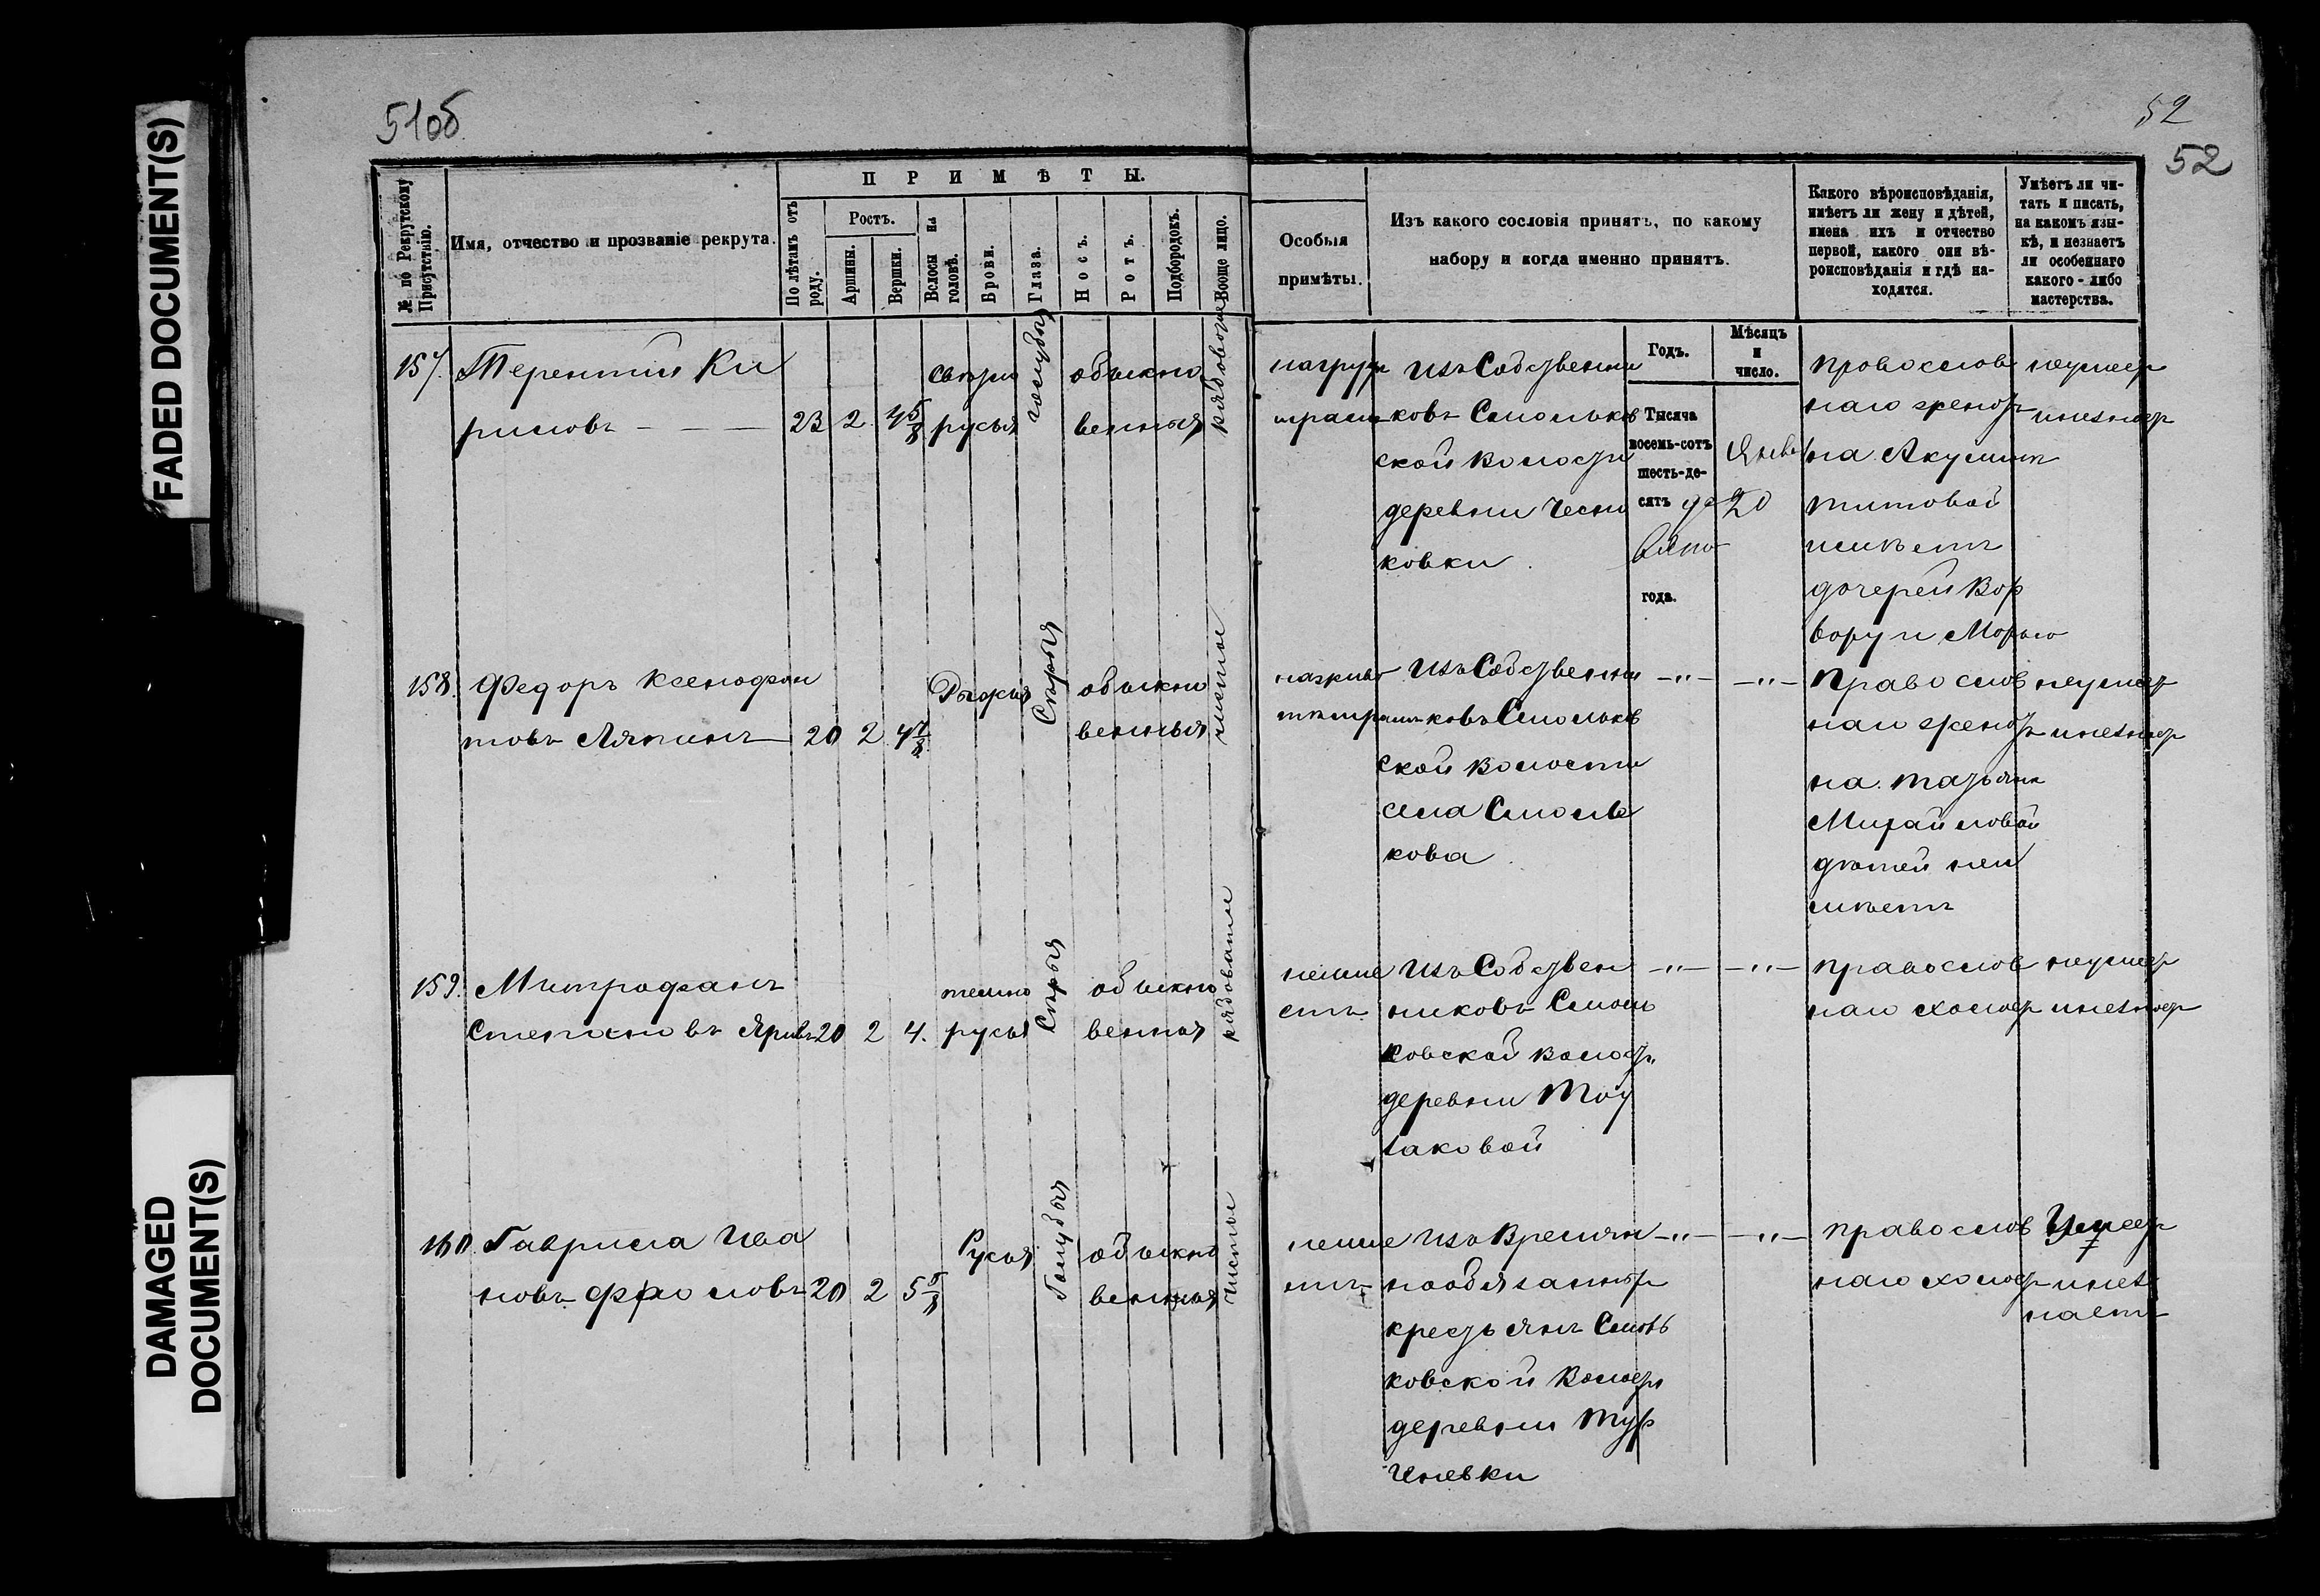 FADED DOCUMENT(S)
DAMAGED
DOCUMENT(S)
51об
52
52
№ по Рекрутскому Присутствію.
Имя, отчество и прозваніе рекрута.
ПРИМѢТЫ.
По лѣтамъ отъ роду.
Ростъ.
Аршины.
Вершки.
Волосы на головѣ.
Брови.
Глаза.
Носъ.
Ротъ.
Подбородокъ.
Вооще лицо.
Особыя
примѣты.
Изъ какого сословія принятъ, по какому
набору и когда именно принятъ.
Какого вѣроисповѣданія,
имѣетъ ли жену и дѣтей,
имена ихъ и отчество
первой, какого они вѣ-
роисповѣданія и гдѣ на-
ходятся.
Умѣетъ ли чи-
тать и писать,
на какомъ язы-
кѣ, и незнаетъ
ли особеннаго
какого-либо
мастерства.
Годъ.
Мѣсяцъ
и
число.
Тысяча
восемь-сотъ
шесть-де-
сятъ де
вято
года.
Янв
20
157. Терентий Ки
риловъ - - - 23 2 4 5/8
свѣтло
русыя
голубыя
обыкно
венныя
рябоватое
на груди
шрам
изъ Собственни
ковъ Смольков
ской Волости
деревни Чесно
ковки.
православ
наго женатъ
на Акулин
Титовой
имѣетъ
дочерей Вар
вару и Марью
неумеет
и незнает
158. Федоръ Ксенофон
товъ Ляпинъ 20 2 4 7/8
Рыжыя
Серыя
обыкно
венныя
чистое
изъ Собственни
ковъ Смольков
ской Волости
села Смоль
кова
-"- -"-
православ
наго женатъ
на Татьян
Михайловой
дѣтей неи
мѣетъ
неумеет
и незнает
159. Митрофанъ
Степановъ 20 2 4.
темно
русыя
Серыя
обыкно
венныя
рябоватое
неиме
етъ
изъ Собствен
никовъ Смоль
ковской волост
деревни
-"- -"-
православ
наго холост
неумеет
и незнает
160. Гаврила Ива
новъ Фроловъ 20 2 5 5/8
Русыя
Голубыя
обыкно
венныя
Чистое
неиме
етъ
изъ Времян
нообязанных
крестьянъ Смоль
ковской Волост
деревни Тур
-"- -"-
православ
наго холост
Умеет
и нез
наетъ